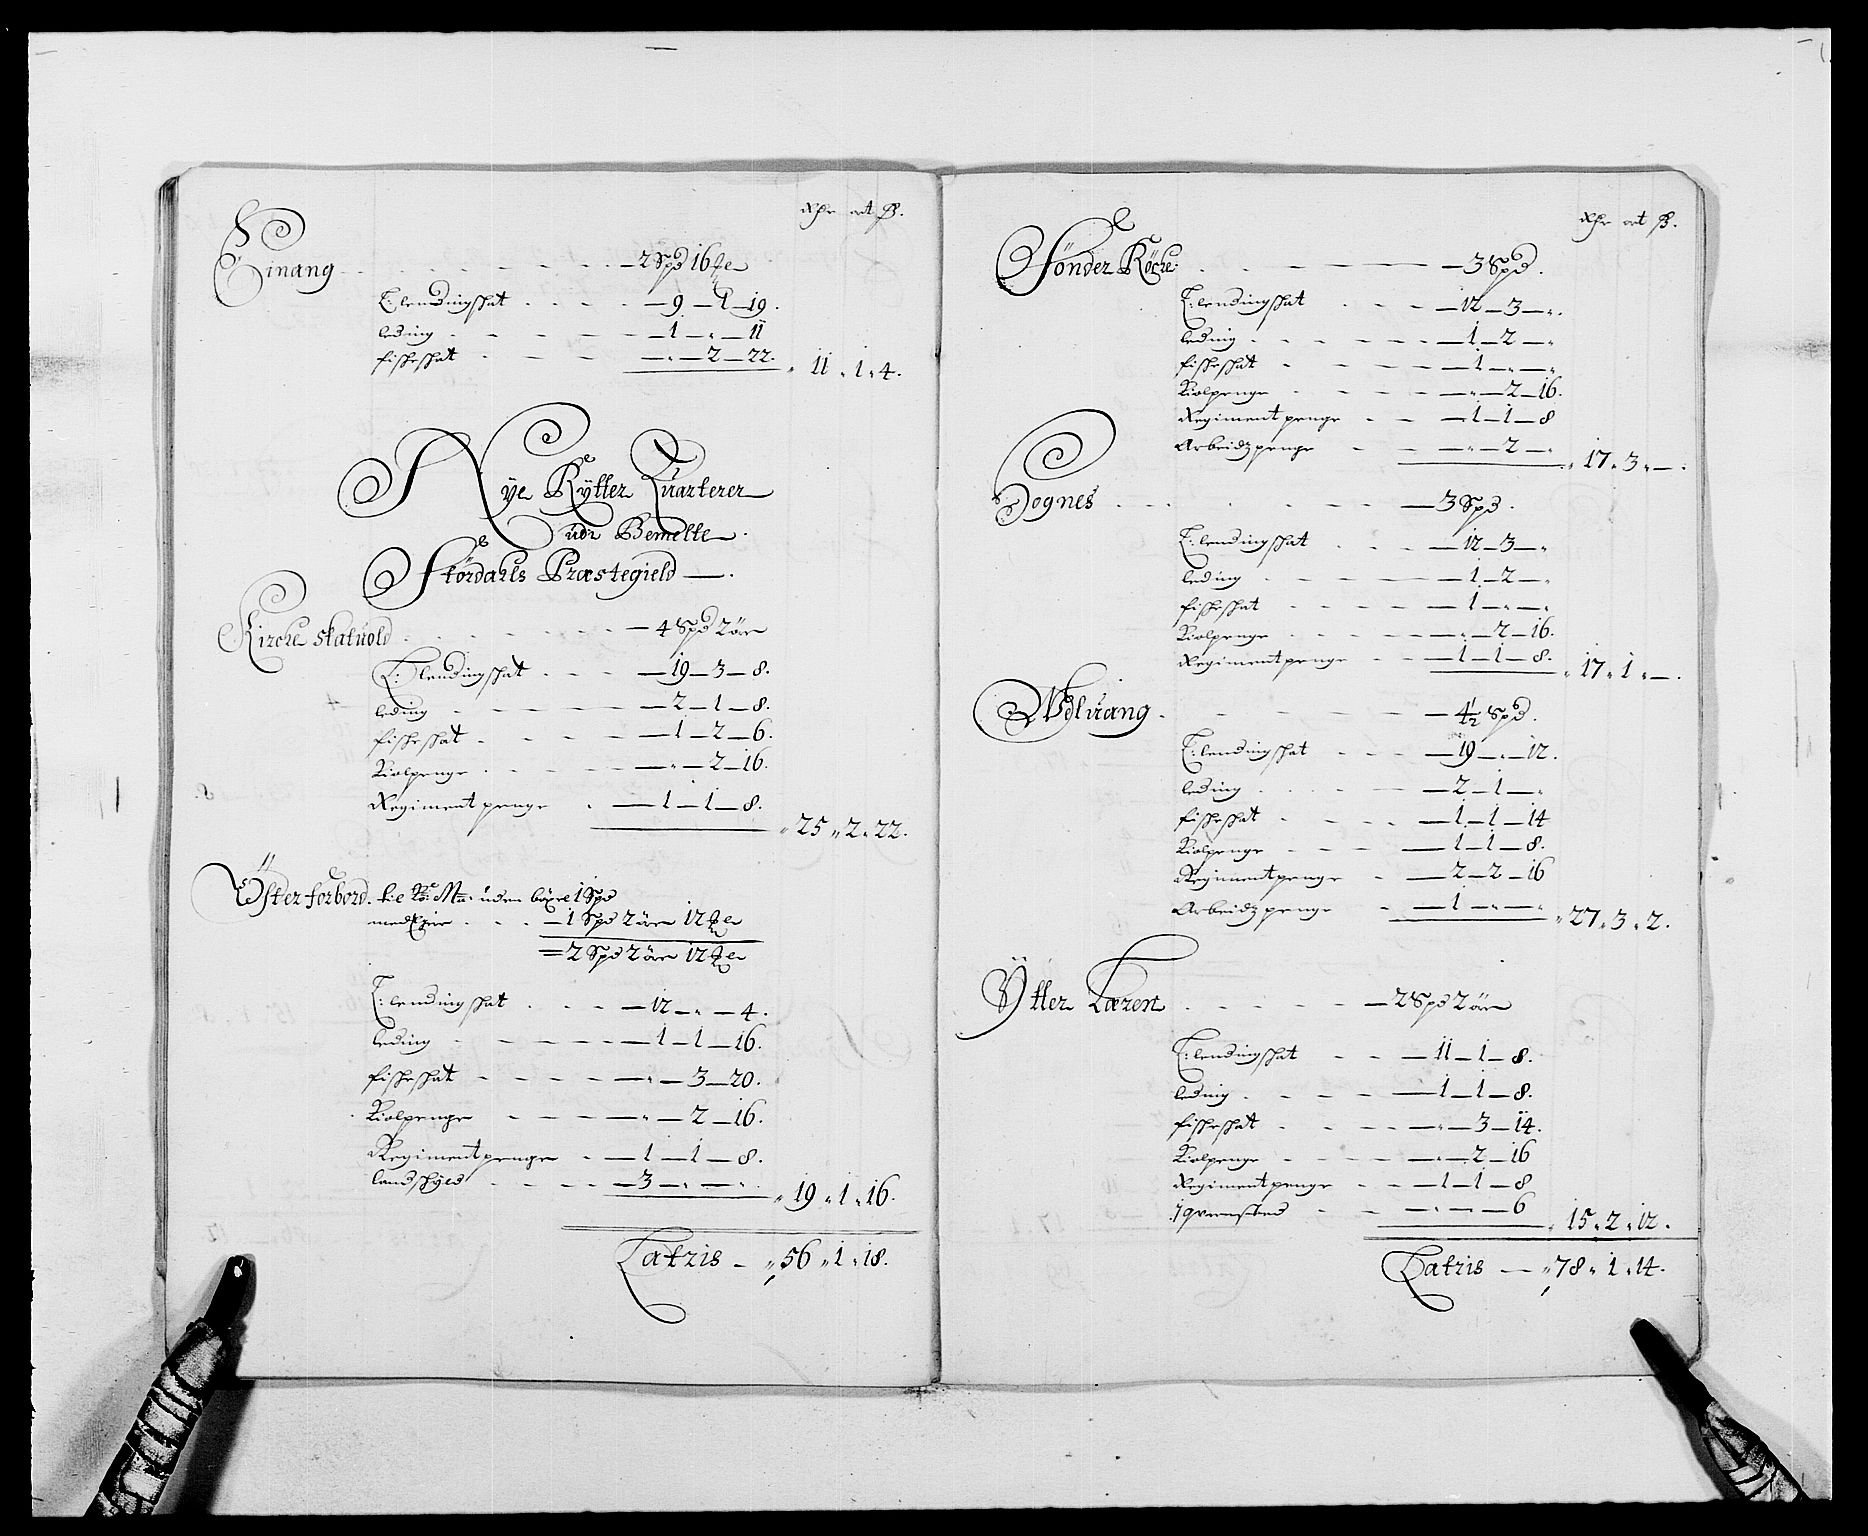 Rdr ort ß.
Einang - 2 Spd 16
T: lendingskat - 9 - 1 - 19.
leding - 1 - " - 11
fiskeskat - " - 2 - 22. " 11 " 1 " 4.
Nÿe Rÿtter Quarterer
udi Bemelte
Størdahls Præstegield
Kirche Skatuold - 4 Spd 2 ører
T: lendingskat - 19 - 3 - 8.
leding - 2 - 1 - 8.
fiskeskat - 1 - 2 - 6.
Kiolpenge - " - 2 - 16.
Regimentpenge - 1 - 1 - 8. " 25 " 2 " 22.
Öster forbord. uden böxel 1 Spd
med - 1 Spd 2 ører 12
= 2 Spd 2 ører 12
T: lendingskat - 12 - " - 4.
leding - 1 - 1 - 16.
fiskeskat - " - 3 - 20.
Kiolpenge - " - 2 - 16.
Regimentpenge - 1 - 1 - 8.
landskÿld - 3 - " - " . " 19 " 1 " 16.
Latris - " 56 " 1 " 18.
Rdr ort ß.
Sönder Köche - 3 Spd.
T: lendingskat - 12 - 3 - ".
leding - 1 - 2 - "
fiskeskat - 1 - " - "
Kiolpenge - " - 2 - 16.
Regimentpenge - 1 - 1 - 8
Arbeidzpenge - " - 2 - " " 17 " 3 " - .
Hognes - 3 Spd.
T: lendingskat - 12 - 3 - "
leding - 1 - 2 - "
fiskeskat - 1 - " - "
Kiolpenge - " - 2 - 16.
Regimentpenge - 1 - 1 - 8. " 17 " 1 " - .
Woluang. - 4½ Spd.
T: lendingskat - 19 - " - 12.
leding - 2 - 1 - "
fiskeskat - 1 - 1 - 14
Kiolpenge - 1 - 1 - 8.
Regimentpenge - 2 - 2 - 16
Arbeidzpenge - 1 - " - " " 27 " 3 " 2.
Ÿtter Færen - 2 Spd 2 ører
T: lendingskat - 11 - 1 - 8.
leding - 1 - 1 - 8.
fiskeskat - " - 3 - 14.
Kiolpenge - " - 2 - 16
Regimentpenge - 1 - 1 - 8
1 qvernsted - " - " - 6 " 15 " 2 " 12.
Latris - " 78 " 1 " 14.